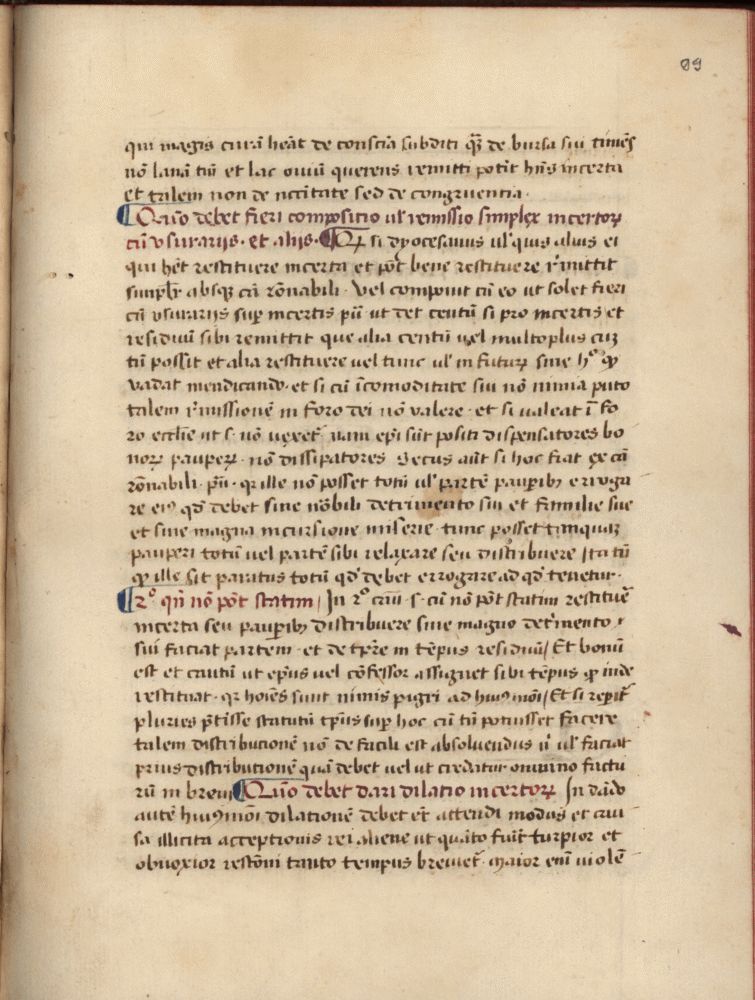 89
qui magis curā heāt de consciā subditi qȝ de bursa siu timēs
nō lanā tm̄ et lac ouiū querens remitti potīt hīs incerta
et talem non de nccītate sed de congruentia.
Quō debet fieri compositio ul' remissio simplex incertoꝝ
cū vsurarijs. et alijs. si dyocesanus ul' quis alius ei
qui hēt restituere incerta et pōt bene restituere r̄mittit
simplr̄ absqȝ cā rōnabili. vel componit cū eo ut solet fieri
cū vsurarijs sup incertis pū ut det centū si pro incertis et
residuū sibi remittit que alia centū uel multoplus cuȝ
tn̄ possit et alia restituere uel tunc ul' in futurꝝ sine hᵒ ꝙ
vadat mendicando. et si cū īcomoditate siu nō nimia puto
talem r̄missionē in foro dei nō valere. et si ualeat ī fo
ro ecclīe ut s. nō uexet' nam ep̄i sūt positi dispensatores bo
noꝝ pauperꝝ. nō dissipatores Secus aūt si hoc fiat ex cā
rōnabili. qr ille nō posset totū ul' partē pauꝑibȝ erroga
re eiꝰ qd̄ debet sine nōbili detrimento siu et familie sue
et sine magna incursione miserie tunc posset tanquaȝ
pauperi totū uel partē sibi relaxare seu distribuere Ita tn̄
ꝙ ille sit paratus totū qd̄ debet errogare ad qd̄ tenetur.
2ᵒ qn̄ nō pōt statim / In 2ᵒ cāu .s. cū nō pōt statim restituē
incerta seu pauꝑibȝ distribuere sine magno det'mento
sui faciat partem. et de tp̄re in tēpus residuū / Et bonū
est et cautū ut ep̄us uel cōfessor assignet sibi tēpus ꝙ inde
restituat. qr hoīes sunt nimis pigri ad huiꝰmōi / Et si repīt
pluries p̄tīsse statutū tp̄us sup hoc cū tn̄ potuisset facere
talem distributionē nō de facili est absoluendus n̄ ul' faciat
prius distributionē quā debet uel ut credatur omnino factu
rū in breui Quō debet dari dilatio incertoꝝ In dādo
autē huiꝰmōi dilationē debet et' attendi modus et cau
sa illicita acceptionis rei aliene ut quāto fuit turpior et
obnoxior restōni tanto tempus breuiet'. maior enī uiolē